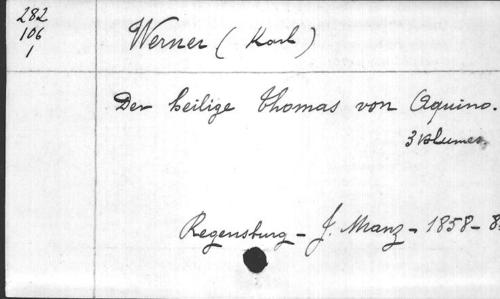 282
106
1
Werner ( Karl )
Der heilige Thomas von Aquino.
3 volumes.
Regensburg - J. Manz - 1858 - 8.